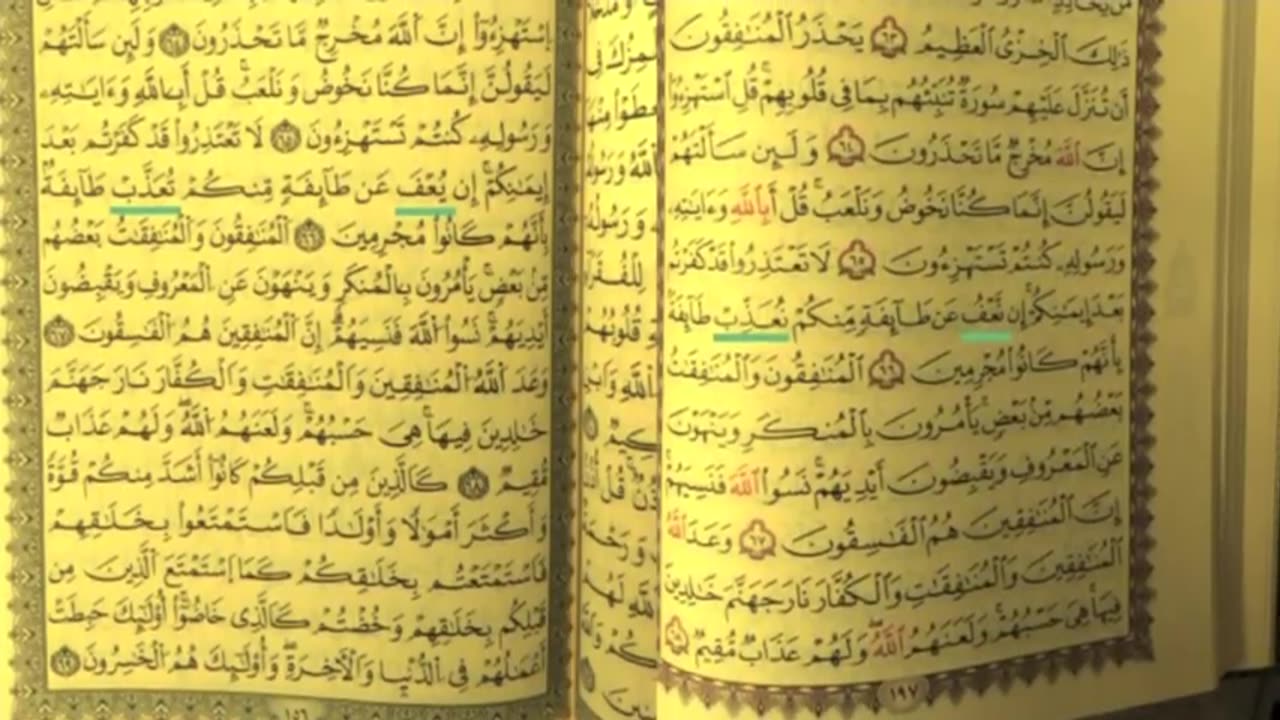 ذَٰلِكَ ٱلْخِزْىُ ٱلْعَظِيمُ ٦٣ يَحْذَرُ ٱلْمُنَٰفِقُونَ
أَن تُنَزَّلَ عَلَيْهِمْ سُورَةٌ تُنَبِّئُهُم بِمَا فِى قُلُوبِهِمْ ۚ قُلِ ٱسْتَهْزِءُوٓا۟
إِنَّ ٱللَّهَ مُخْرِجٌ مَّا تَحْذَرُونَ ٦٤ وَلَئِن سَأَلْتَهُمْ
لَيَقُولُنَّ إِنَّمَا كُنَّا نَخُوضُ وَنَلْعَبُ ۚ قُلْ أَبِٱللَّهِ وَءَايَٰتِهِۦ
وَرَسُولِهِۦ كُنتُمْ تَسْتَهْزِءُونَ ٦٥ لَا تَعْتَذِرُوا۟ قَدْ كَفَرْتُم
بَعْدَ إِيمَٰنِكُمْ ۚ إِن نَّعْفُ عَن طَآئِفَةٍ مِّنكُمْ نُعَذِّبْ طَآئِفَةًۢ
بِأَنَّهُمْ كَانُوا۟ مُجْرِمِينَ ٦٦ ٱلْمُنَٰفِقُونَ وَٱلْمُنَٰفِقَٰتُ
بَعْضُهُم مِّنۢ بَعْضٍ ۚ يَأْمُرُونَ بِٱلْمُنكَرِ وَيَنْهَوْنَ
عَنِ ٱلْمَعْرُوفِ وَيَقْبِضُونَ أَيْدِيَهُمْ ۚ نَسُوا۟ ٱللَّهَ فَنَسِيَهُمْ ۗ
إِنَّ ٱلْمُنَٰفِقِينَ هُمُ ٱلْفَٰسِقُونَ ٦٧ وَعَدَ ٱللَّهُ
ٱلْمُنَٰفِقِينَ وَٱلْمُنَٰفِقَٰتِ وَٱلْكُفَّارَ نَارَ جَهَنَّمَ خَٰلِدِينَ
فِيهَا ۚ هِىَ حَسْبُهُمْ ۚ وَلَعَنَهُمُ ٱللَّهُ ۖ وَلَهُمْ عَذَابٌ مُّقِيمٌ ٦٨
١٩٧
اِ۪سْتَهْزِءُوٓا۟ إِنَّ ٱللَّهَ مُخْرِجٌ مَّا تَحْذَرُونَ وَلَئِن سَأَلْتَهُمْ
لَيَقُولُنَّ إِنَّمَا كُنَّا نَخُوضُ وَنَلْعَبُ ۚ قُلْ أَبِٱللَّهِ وَءَايَٰتِهِۦ
وَرَسُولِهِۦ كُنتُمْ تَسْتَهْزِءُونَ لَا تَعْتَذِرُوا۟ قَدْ كَفَرْتُم بَعْدَ
إِيمَٰنِكُمْ ۚ إِن يُعْفَ عَن طَآئِفَةٍ مِّنكُمْ تُعَذَّبْ طَآئِفَةٌۢ
بِأَنَّهُمْ كَانُوا۟ مُجْرِمِينَ ٱلْمُنَٰفِقُونَ وَٱلْمُنَٰفِقَٰتُ بَعْضُهُم
مِّنۢ بَعْضٍ ۚ يَأْمُرُونَ بِالْمُنكَرِ وَيَنْهَوْنَ عَنِ ٱلْمَعْرُوفِ وَيَقْبِضُونَ
أَيْدِيَهُمْ ۚ نَسُوا۟ ٱللَّهَ فَنَسِيَهُمْ ۗ إِنَّ ٱلْمُنَٰفِقِينَ هُمُ ٱلْفَٰسِقُونَ
وَعَدَ ٱللَّهُ ٱلْمُنَٰفِقِينَ وَٱلْمُنَٰفِقَٰتِ وَالْكُفَّارَ نَارَ جَهَنَّمَ
خَٰلِدِينَ فِيهَا ۚ هِىَ حَسْبُهُمْ ۚ وَلَعَنَهُمُ ٱللَّهُ ۖ وَلَهُمْ عَذَابٌ
مُّقِيمٌ كَالَّذِينَ مِن قَبْلِكُمْ كَانُوٓا۟ أَشَدَّ مِنكُمْ قُوَّةً
وَأَكْثَرَ أَمْوَٰلًا وَأَوْلَٰدًا فَاسْتَمْتَعُوا۟ بِخَلَٰقِهِمْ
فَاسْتَمْتَعْتُم بِخَلَٰقِكُمْ كَمَا اَسْتَمْتَعَ ٱلَّذِينَ مِن
قَبْلِكُم بِخَلَٰقِهِمْ وَخُضْتُمْ كَالَّذِى خَاضُوٓا۟ ۚ أُو۟لَٰٓئِكَ حَبِطَتْ
أَعْمَٰلُهُمْ فِى ٱلدُّنْيَا وَٱلْءَاخِرَةِ ۖ وَأُو۟لَٰٓئِكَ هُمُ ٱلْخَٰسِرُونَ